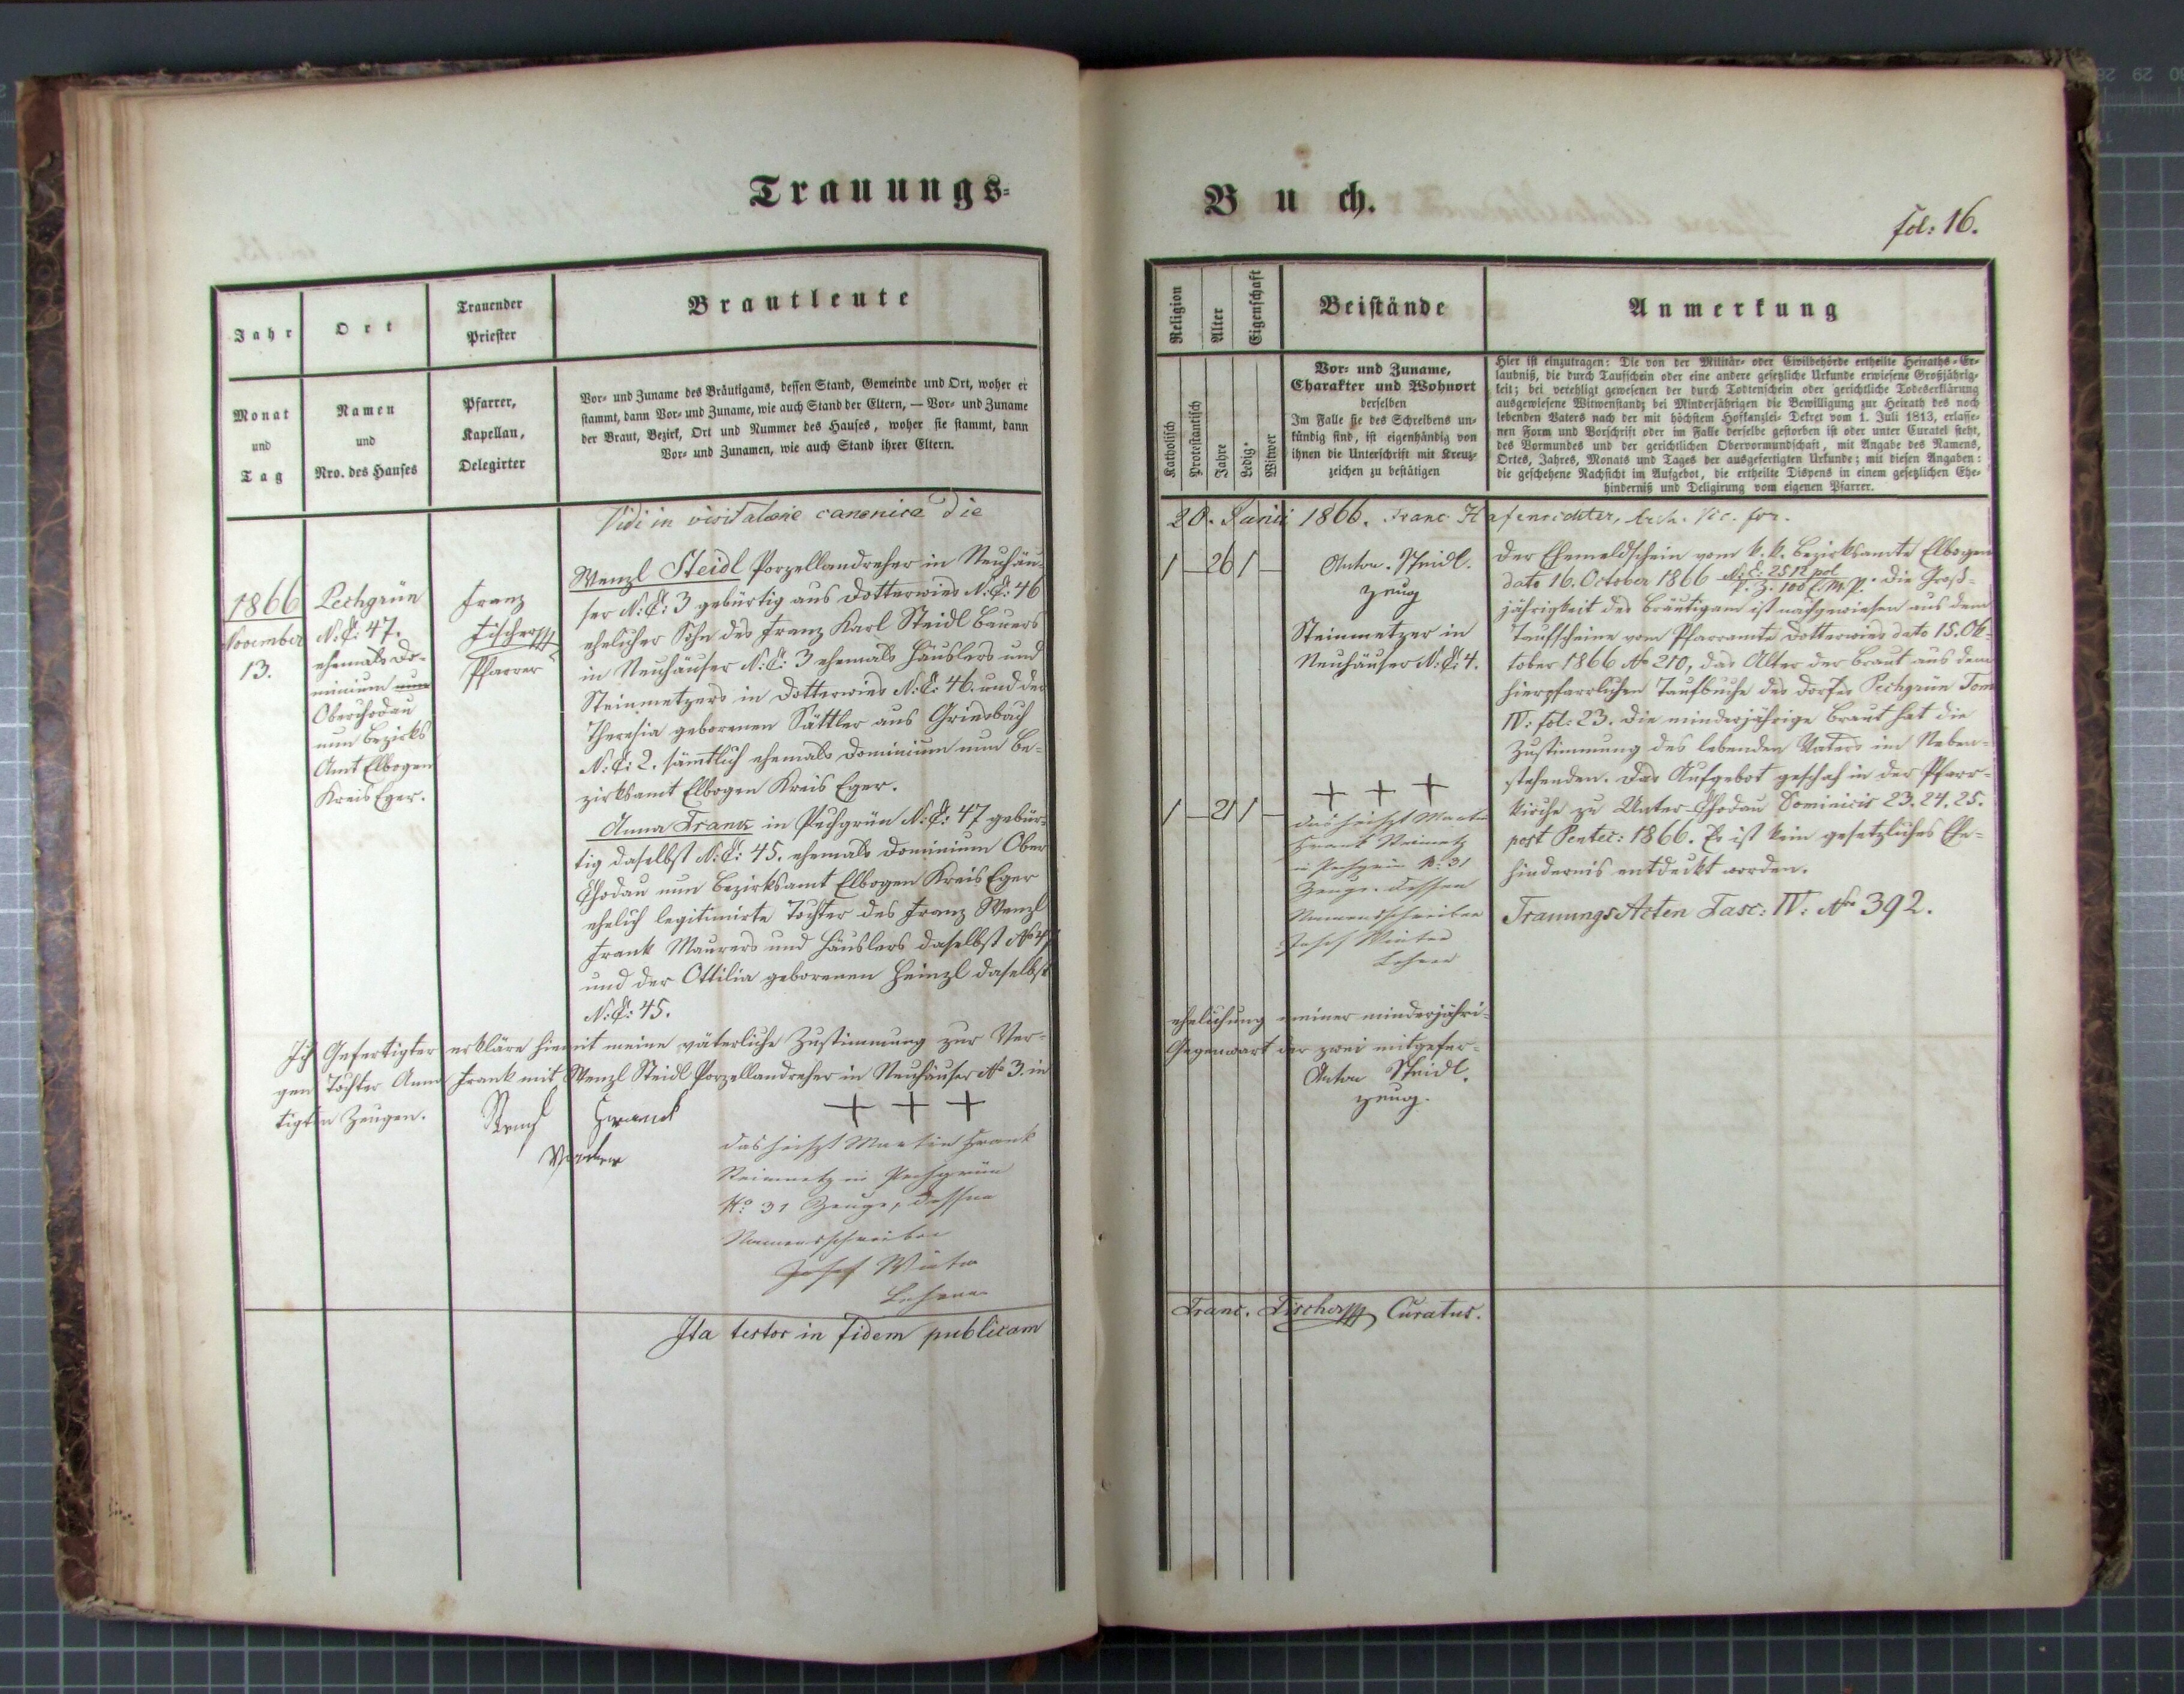 Trauungs=
Buch.
fol: 16.
Jahr
Ort
Trauender
Priester
Brautleute
Monat
und
Tag
Namen
und
Nro. des Hauses
Pfarrer,
Kapellan,
Delegirter
Vor- und Zuname des Bräutigams, dessen Stand, Gemeinde und Ort, woher er
stammt, dann Vor- und Zuname, wie auch Stand der Eltern, — Vor- und Zuname
der Braut, Bezirk, Ort und Nummer des Hauses, woher sie stammt, dann
Vor- und Zunamen, wie auch Stand ihrer Eltern.
Religion
Alter
Eigenschaft
Beistände
Anmerkung
Katholisch
Protestantisch
Jahre
Ledig
Witwer
Vor- und Zuname,
Charakter und Wohnort
derselben
Im Falle sie des Schreibens un-
kündig sind, ist eigenhändig von
ihnen die Unterschrift mit Kreuz-
zeichen zu bestätigen
Hier ist einzutragen: Die von der Militär- oder Civilbehörde ertheilte Heiraths-Er-
laubniß, die durch Taufschein oder eine andere gesetzliche Urkunde erwiesene Großjährig-
keit; bei verehligt gewesenen der durch Todtenschein oder gerichtliche Todeserklärung
ausgewiesene Witwenstand; bei Minderjährigen die Bewilligung zur Heirath des noch
lebenden Vaters nach der mit höchstem Hofkanzlei-Dekret vom 1. Juli 1813, erlasse-
nen Form und Vorschrift oder im Falle derselbe gestorben ist oder unter Curatel steht,
des Vormundes und der gerichtlichen Obervormundschaft, mit Angabe des Namens,
Ortes, Jahres, Monats und Tages der ausgefertigten Urkunde; mit diesen Angaben:
die geschehene Nachsicht im Aufgebot, die ertheilte Dispens in einem gesetzlichen Ehe-
hinderniß und Deligirung vom eigenen Pfarrer.
Vidi in visitatione canonica die
20. Junii 1866. Franc Hafenrichter, Arch. Vic. for.
1866
November
13.
Pechgrün
N:C: 47.
ehemals Do-
minium nun
Oberchodau
nun Bezirks
Amt Elbogen
Kreis Eger.
Franz
Fischer
Pfarrer
Wenzl Steidl Porzellandreher in Neuhäu-
ser N:C: 3 gebürtig aus Dotterwies N:C: 46
ehelicher Sohn des Franz Karl Steidl Bauers
in Neuhäuser N:C: 3 ehemals Häuslers und
Steinmetzers in Dotterwies N:C: 46. und der
Theresia geborenen Sättler aus Griesbach
N:C: 2. sämtlich ehemals Dominium nun Be-
zirksamt Elbogen Kreis Eger.
Anna Frank in Pechgrün N:C: 47 gebür-
tig daselbst N:C: 45. ehemals Dominium Ober
Chodau nun Bezirksamt Elbogen Kreis Eger
ehelich legitimirte Tochter des Franz Wenzl
Frank Maurers und Häuslers daselbst No 47
und der Ottilia geborenen Heinzl daselbst
N:C: 45.
1 26 1
1 21 1
Anton Steidl.
Zeug
Steinmetzer in
Neuhäuser N:C: 4.
+ + +
das heißt Martin
Frank Steinmetz
in Pechgrün No 31
Zeuge. dessen
Namensschreiber
Josef Winter
Lehrer
Der Ehemeldschein vom k.k. Bezirksamte Elbogen
dato 16. October 1866 N:E: 2512 pol
P. Z. 100 C. M. P. Die Groß-
jährigkeit des Bräutigam ist nachgewiesen aus dem
Taufscheine vom Pfarramte Dotterwies dato 15. Ok-
tober 1866 No 210, das Alter der Braut aus dem
hierpfarrlichen Taufbuche des Dorfes Pechgrün Tom
IV: fol: 23. Die minderjährige Braut hat die
Zustimmung des lebenden Vaters im Neben-
stehenden. Das Aufgebot geschah in der Pfarr-
kirche zu Unter-Chodau Dominicis 23. 24. 25.
post Pentec: 1866. Es ist kein gesetzliches Ehe-
hindernis entdeckt worden.
Trauungs Acten Fasc: IV: No 392.
Ich Gefertigter erkläre hiemit meine väterliche Zustimmung zur Ver-
ehelichung meiner minderjähri-
gen Tochter Anna Frank mit Wenzl Steidl Porzellandreher in Neuhäuser No 3. in
Gegenwart der zwei mitgefer-
tigten Zeugen.
Franck
Vater
+ + +
das heißt Martin Frank
Steinmetz in Pechgrün
No 31 Zeuge, dessen
Namensschreiber
Josef Winter
Lehrer
Anton Steidl.
Zeug.
Ita testor in fidem publicam
Franc. Fischer Curatus.